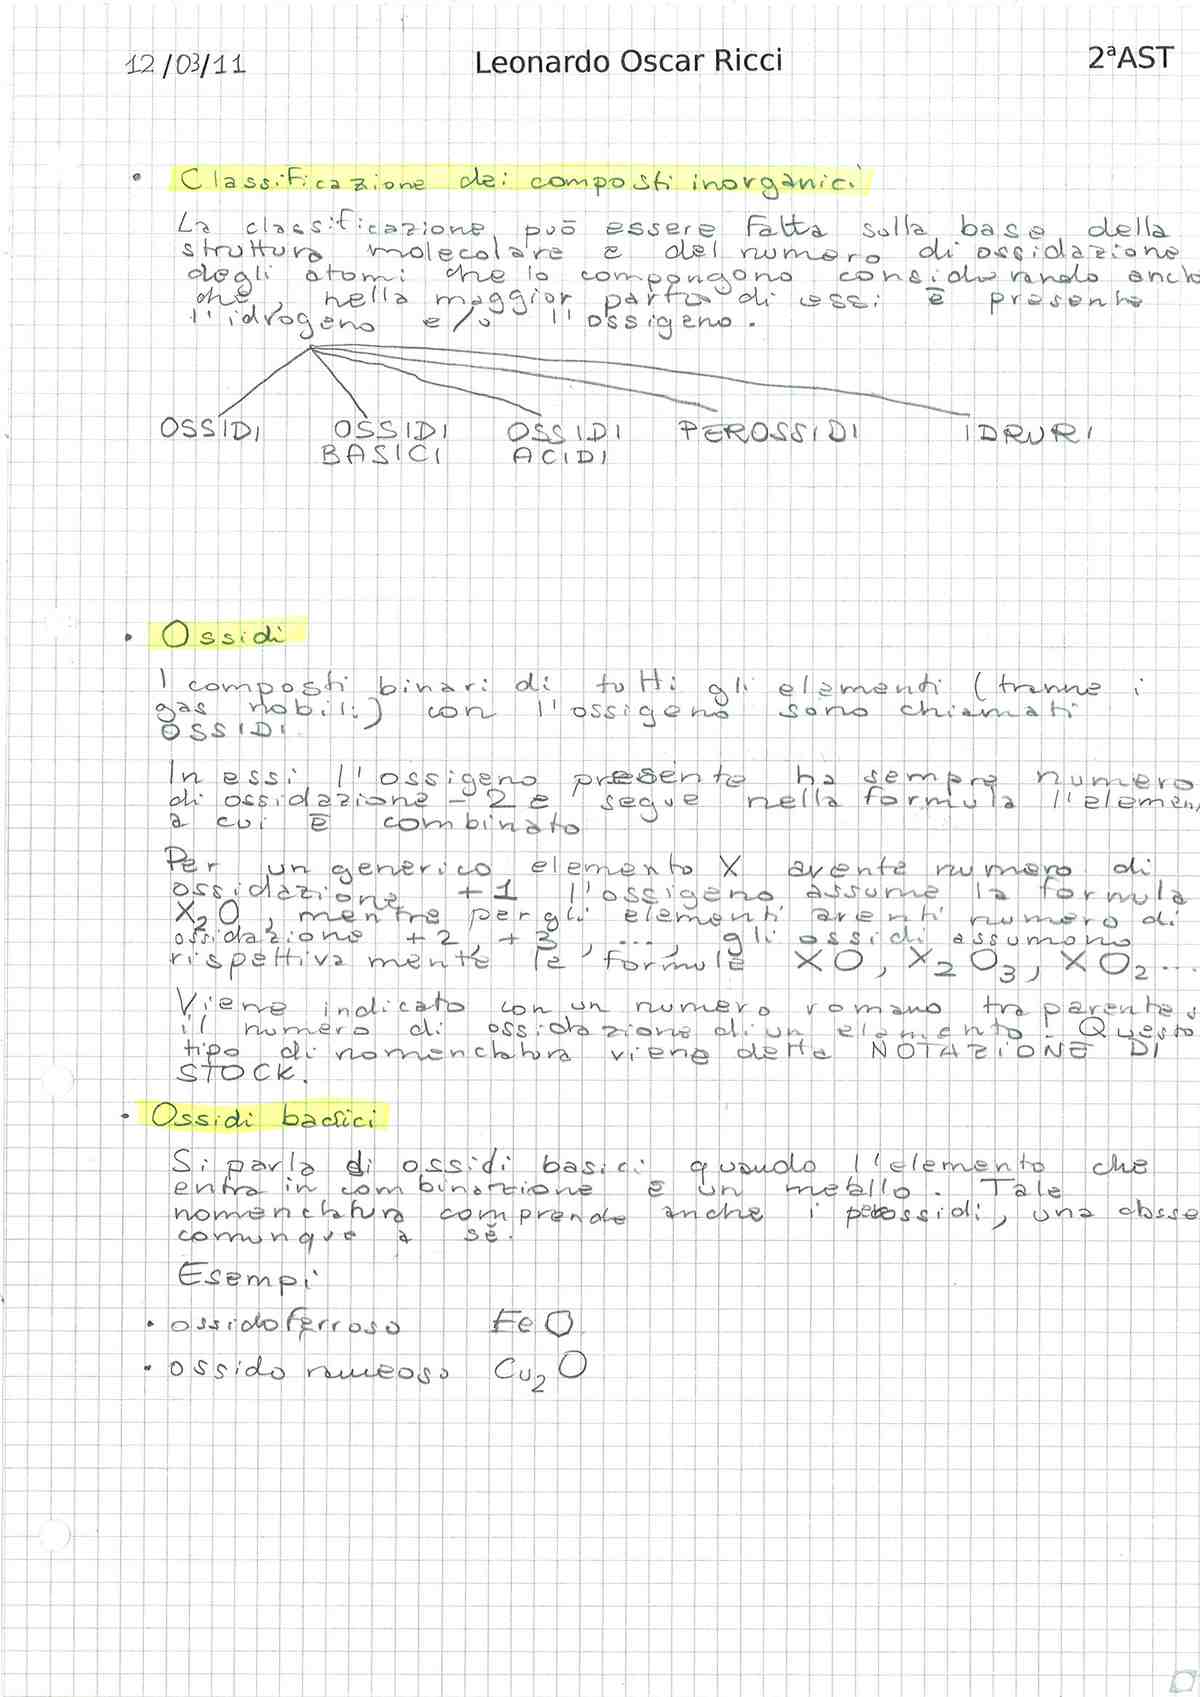 12/03/11 Leonardo Oscar Ricci 2ªAST
• Classificazione dei composti inorganici
La classificazione può essere fatta sulla base della
struttura molecolare e del numero di ossidazione
degli atomi che lo compongono considerando anche
che, nella maggior parte di essi è presente
l'idrogeno e/o l'ossigeno.
OSSIDI OSSIDI BASICI OSSIDI ACIDI PEROSSIDI IDRURI
• Ossidi
I composti binari di tutti gli elementi (tranne i
gas nobili) con l'ossigeno sono chiamati
OSSIDI
In essi l'ossigeno presente ha sempre numero
di ossidazione -2 e segue nella formula l'elemen
a cui è combinato
Per un generico elemento X avente numero di
ossidazione +1 l'ossigeno assume la formula
X₂O, mentre per gli elementi aventi numero di
ossidazione +2, +3, ..., gli ossidi assumono
rispettivamente le formule XO, X₂O₃, XO₂...
Viene indicato con un numero romano tra parentes
il numero di ossidazione di un elemento. Questo
tipo di nomenclatura viene detta NOTAZIONE DI
STOCK.
• Ossidi basici
Si parla di ossidi basici quando l'elemento che
entra in combinazione è un metallo. Tale
nomenclatura comprende anche i perossidi, una classe
comunque a sé.
Esempi
• ossido ferroso FeO
• ossido rameoso Cu₂O